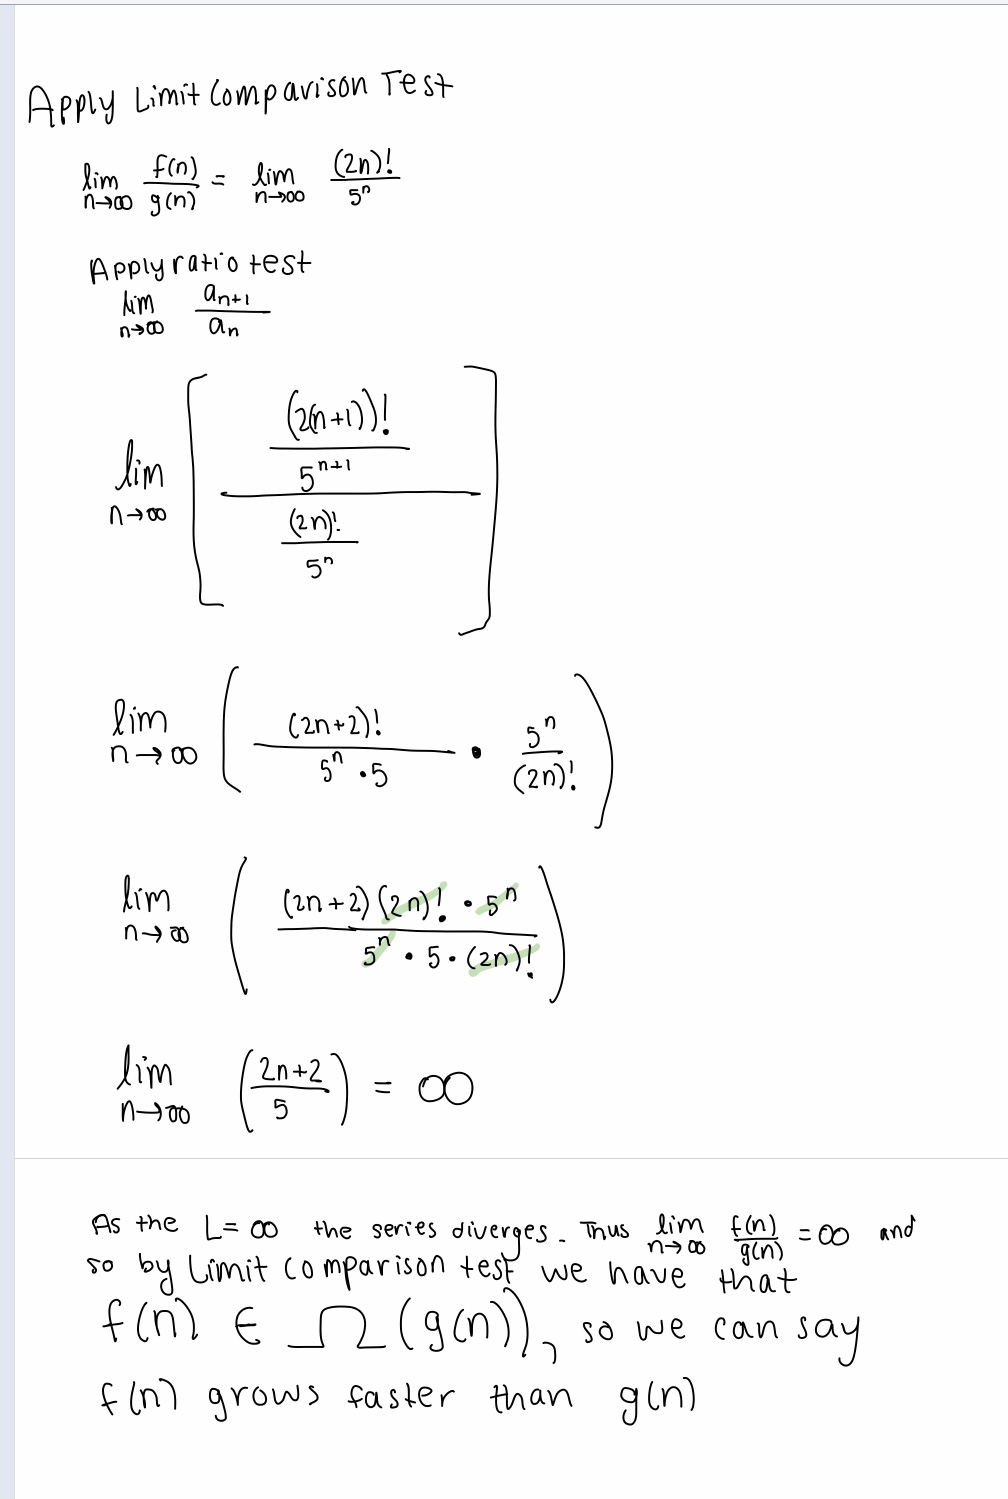 Apply Limit Comparison Test
lim n→∞ f(n)/g(n) = lim n→∞ (2n)!/5^n
Apply ratio test
lim n→∞ a_{n+1}/a_n
lim n→∞ [ ((2(n+1))!/5^{n+1}) / ((2n)!/5^n) ]
lim n→∞ ( (2n+2)!/(5^n · 5) · 5^n/(2n)! )
lim n→∞ ( (2n+2)(2n)! · 5^n / (5^n · 5 · (2n)!) )
lim n→∞ ( (2n+2)/5 ) = ∞
As the L = ∞ the series diverges. Thus lim n→∞ f(n)/g(n) = ∞ and
so by Limit comparison test we have that
f(n) ∈ Ω(g(n)), so we can say
f(n) grows faster than g(n)